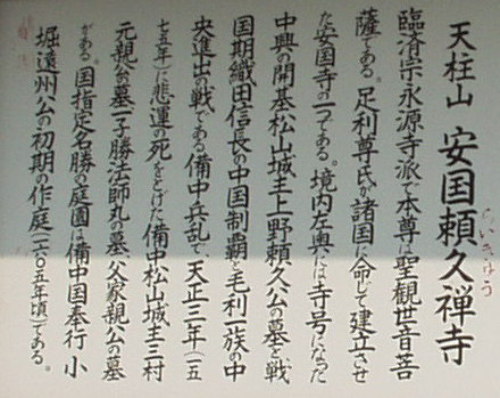 天柱山 安国頼久禅寺
らいきゅう
臨済宗永源寺派で本尊は聖観世音菩
薩である。足利尊氏が諸国に命じて建立させ
た安国寺の一つである。境内左奥には寺号になった
中興の開基松山城主上野頼久公の墓と、戦
国期織田信長の中国制覇と毛利一族の中
央進出の戦である備中兵乱で、天正三年(一五
七五年)に悲運の死をとげた備中松山城主三村
元親公の墓一子勝法師丸の墓、父家親公の墓
がある。国指定名勝の庭園は備中国奉行 小
堀遠州公の初期の作庭(一六〇五年頃)である。